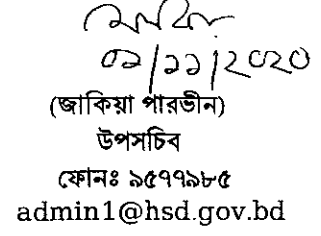 ০১/১১/২০২০
(জাকিয়া পারভীন)
উপসচিব
ফোনঃ ৯৫৭৭৯৮৫
admin1@hsd.gov.bd